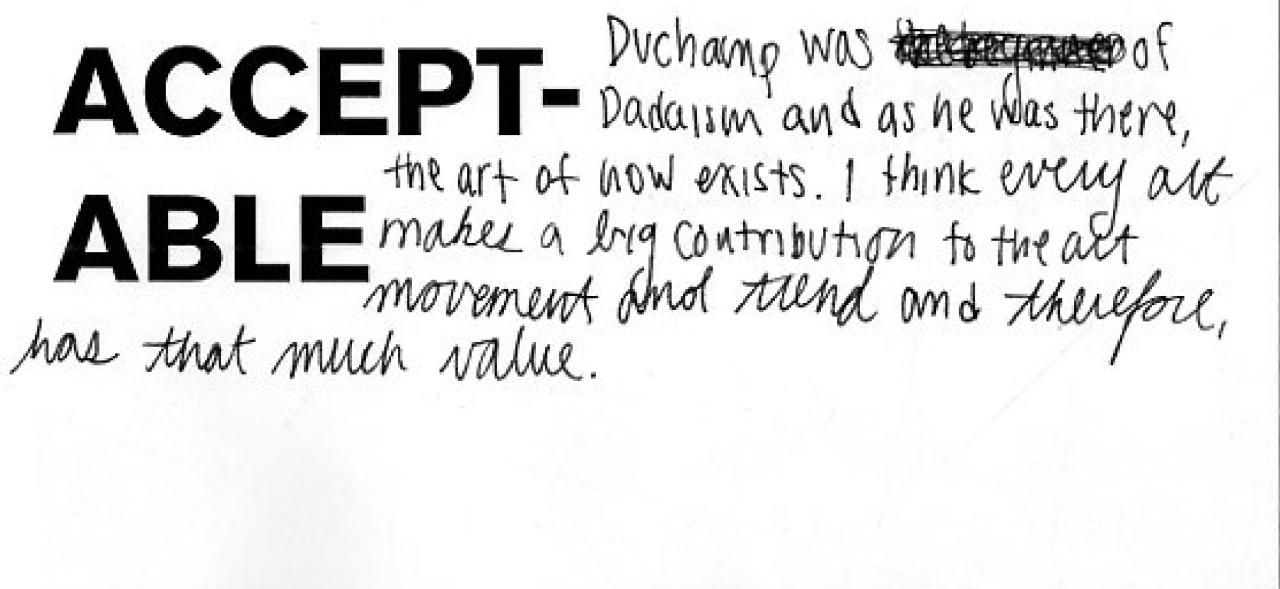 ACCEPT-
ABLE
Duchamp was of
Dadaism and as he was there,
the art of now exists. I think every art
makes a big contribution to the art
movement and trend and therefore,
has that much value.